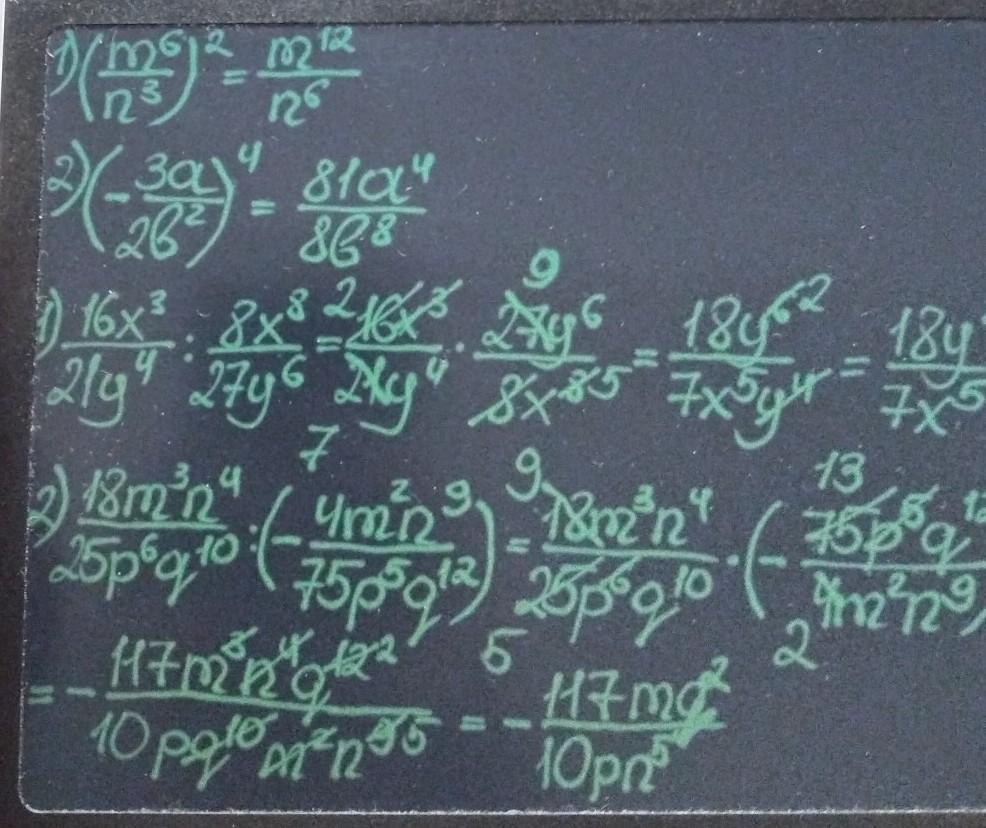 1) (m⁶/n³)² = m¹²/n⁶
2) (-3a/2b²)⁴ = 81a⁴/8b⁸
1) 16x³/21y⁴ : 8x⁸/27y⁶ = 2 16x³/21y⁴ 7 · 9 27y⁶/8x⁸ 5 = 18y⁶ 2/7x⁵y⁴ = 18y/7x⁵
2) 18m³n⁴/25p⁶q¹⁰ : (-4m²n⁹/75p⁵q¹²) = 9 18m³n⁴/25p⁶q¹⁰ 5 · (-13 75p⁵q¹²/4m²n⁹ 2)
= -117m³n⁴q¹² 2/10pq¹⁰m²n⁹ 5 = -117mq²/10pn⁵